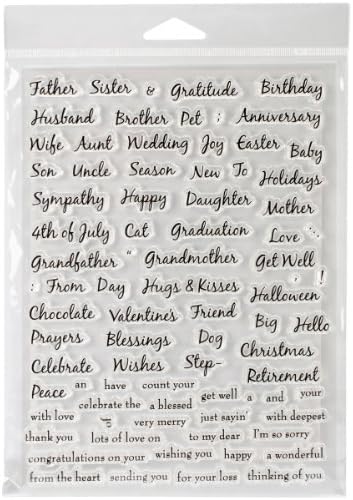 Father Sister & Gratitude Birthday
Husband Brother Pet ; Anniversary
Wife Aunt Wedding Joy Easter Baby
Son Uncle Season New To Holidays
Sympathy Happy Daughter Mother
4th of July Cat Graduation Love
Grandfather " Grandmother Get Well
: From Day Hugs & Kisses Halloween !
Chocolate Valentine's Friend Big Hello
Prayers Blessings Dog Christmas
Celebrate Wishes Step- Retirement
Peace an have count your get well a and your
celebrate the a blessed
with love of very merry just sayin' with deepest
thank you lots of love on to my dear I'm so sorry
congratulations on your wishing you happy a wonderful
from the heart sending you for your loss thinking of you